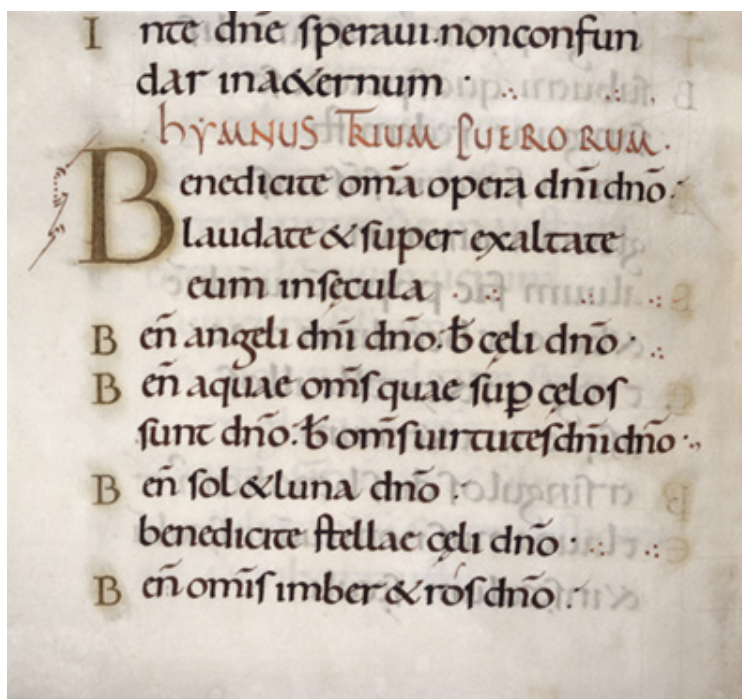 I nte dñe speraui.nonconfun
dar inæternum
hYMNUS TRIUM PUERORUM.
Benedicite om̄a opera dñi dño:
laudate & super exaltate
eum insęcula
B eñ angeli dñi dño. b̄ cęli dño
B eñ aquae om̄s quae sup̲ cęlos
sunt dño: b̄ om̄s uirtutes dñi dño
B eñ sol & luna dño
benedicite stellae cęli dño
B eñ omīs imber & ros dño